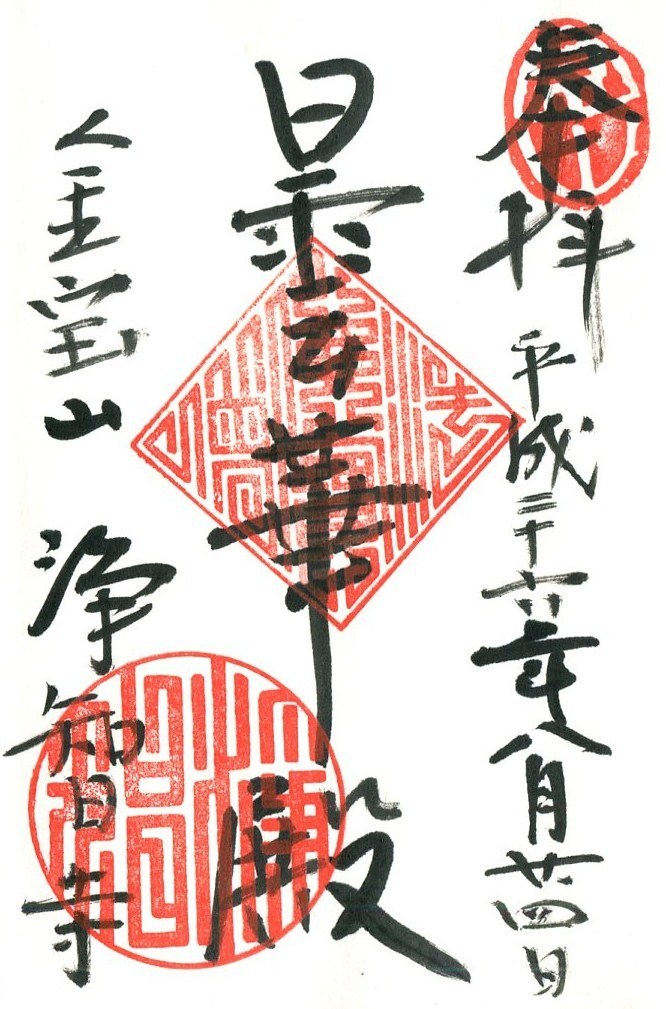 奉拝 平成二十六年八月廿四日
曇華殿
金宝山 浄智寺